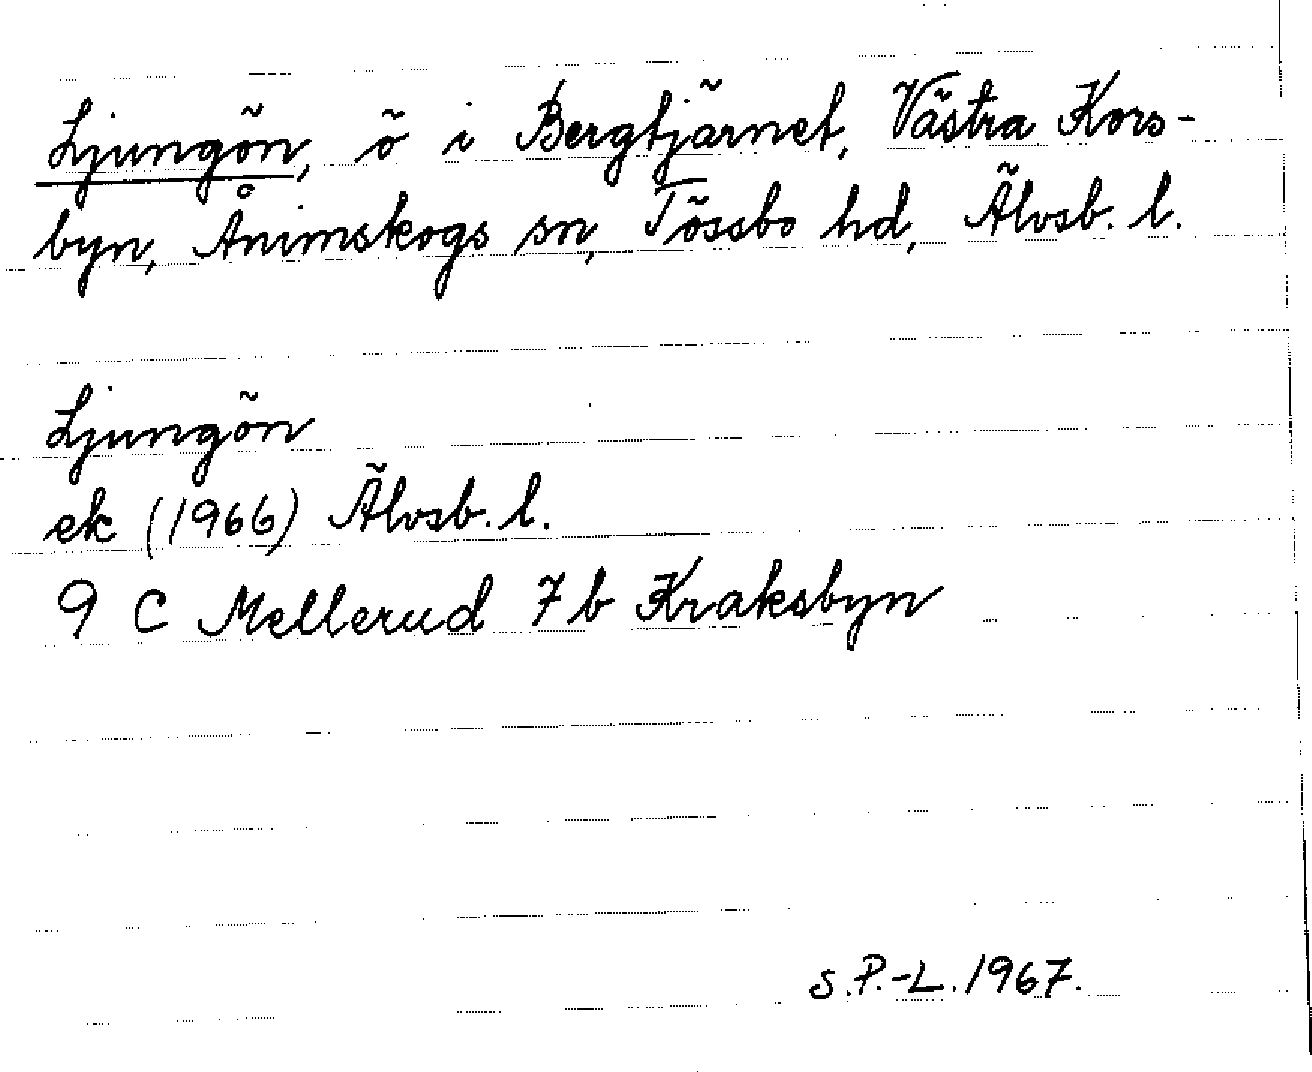 Ljungön, ö i Bergtjärnet, Västra Kors-
byn, Ånimskogs sn, Tössbo hd, Älvsb. l.
Ljungön
ek (1966) Älvsb. l.
9 C Mellerud 7 b Kraksbyn
S.P.-L. 1967.